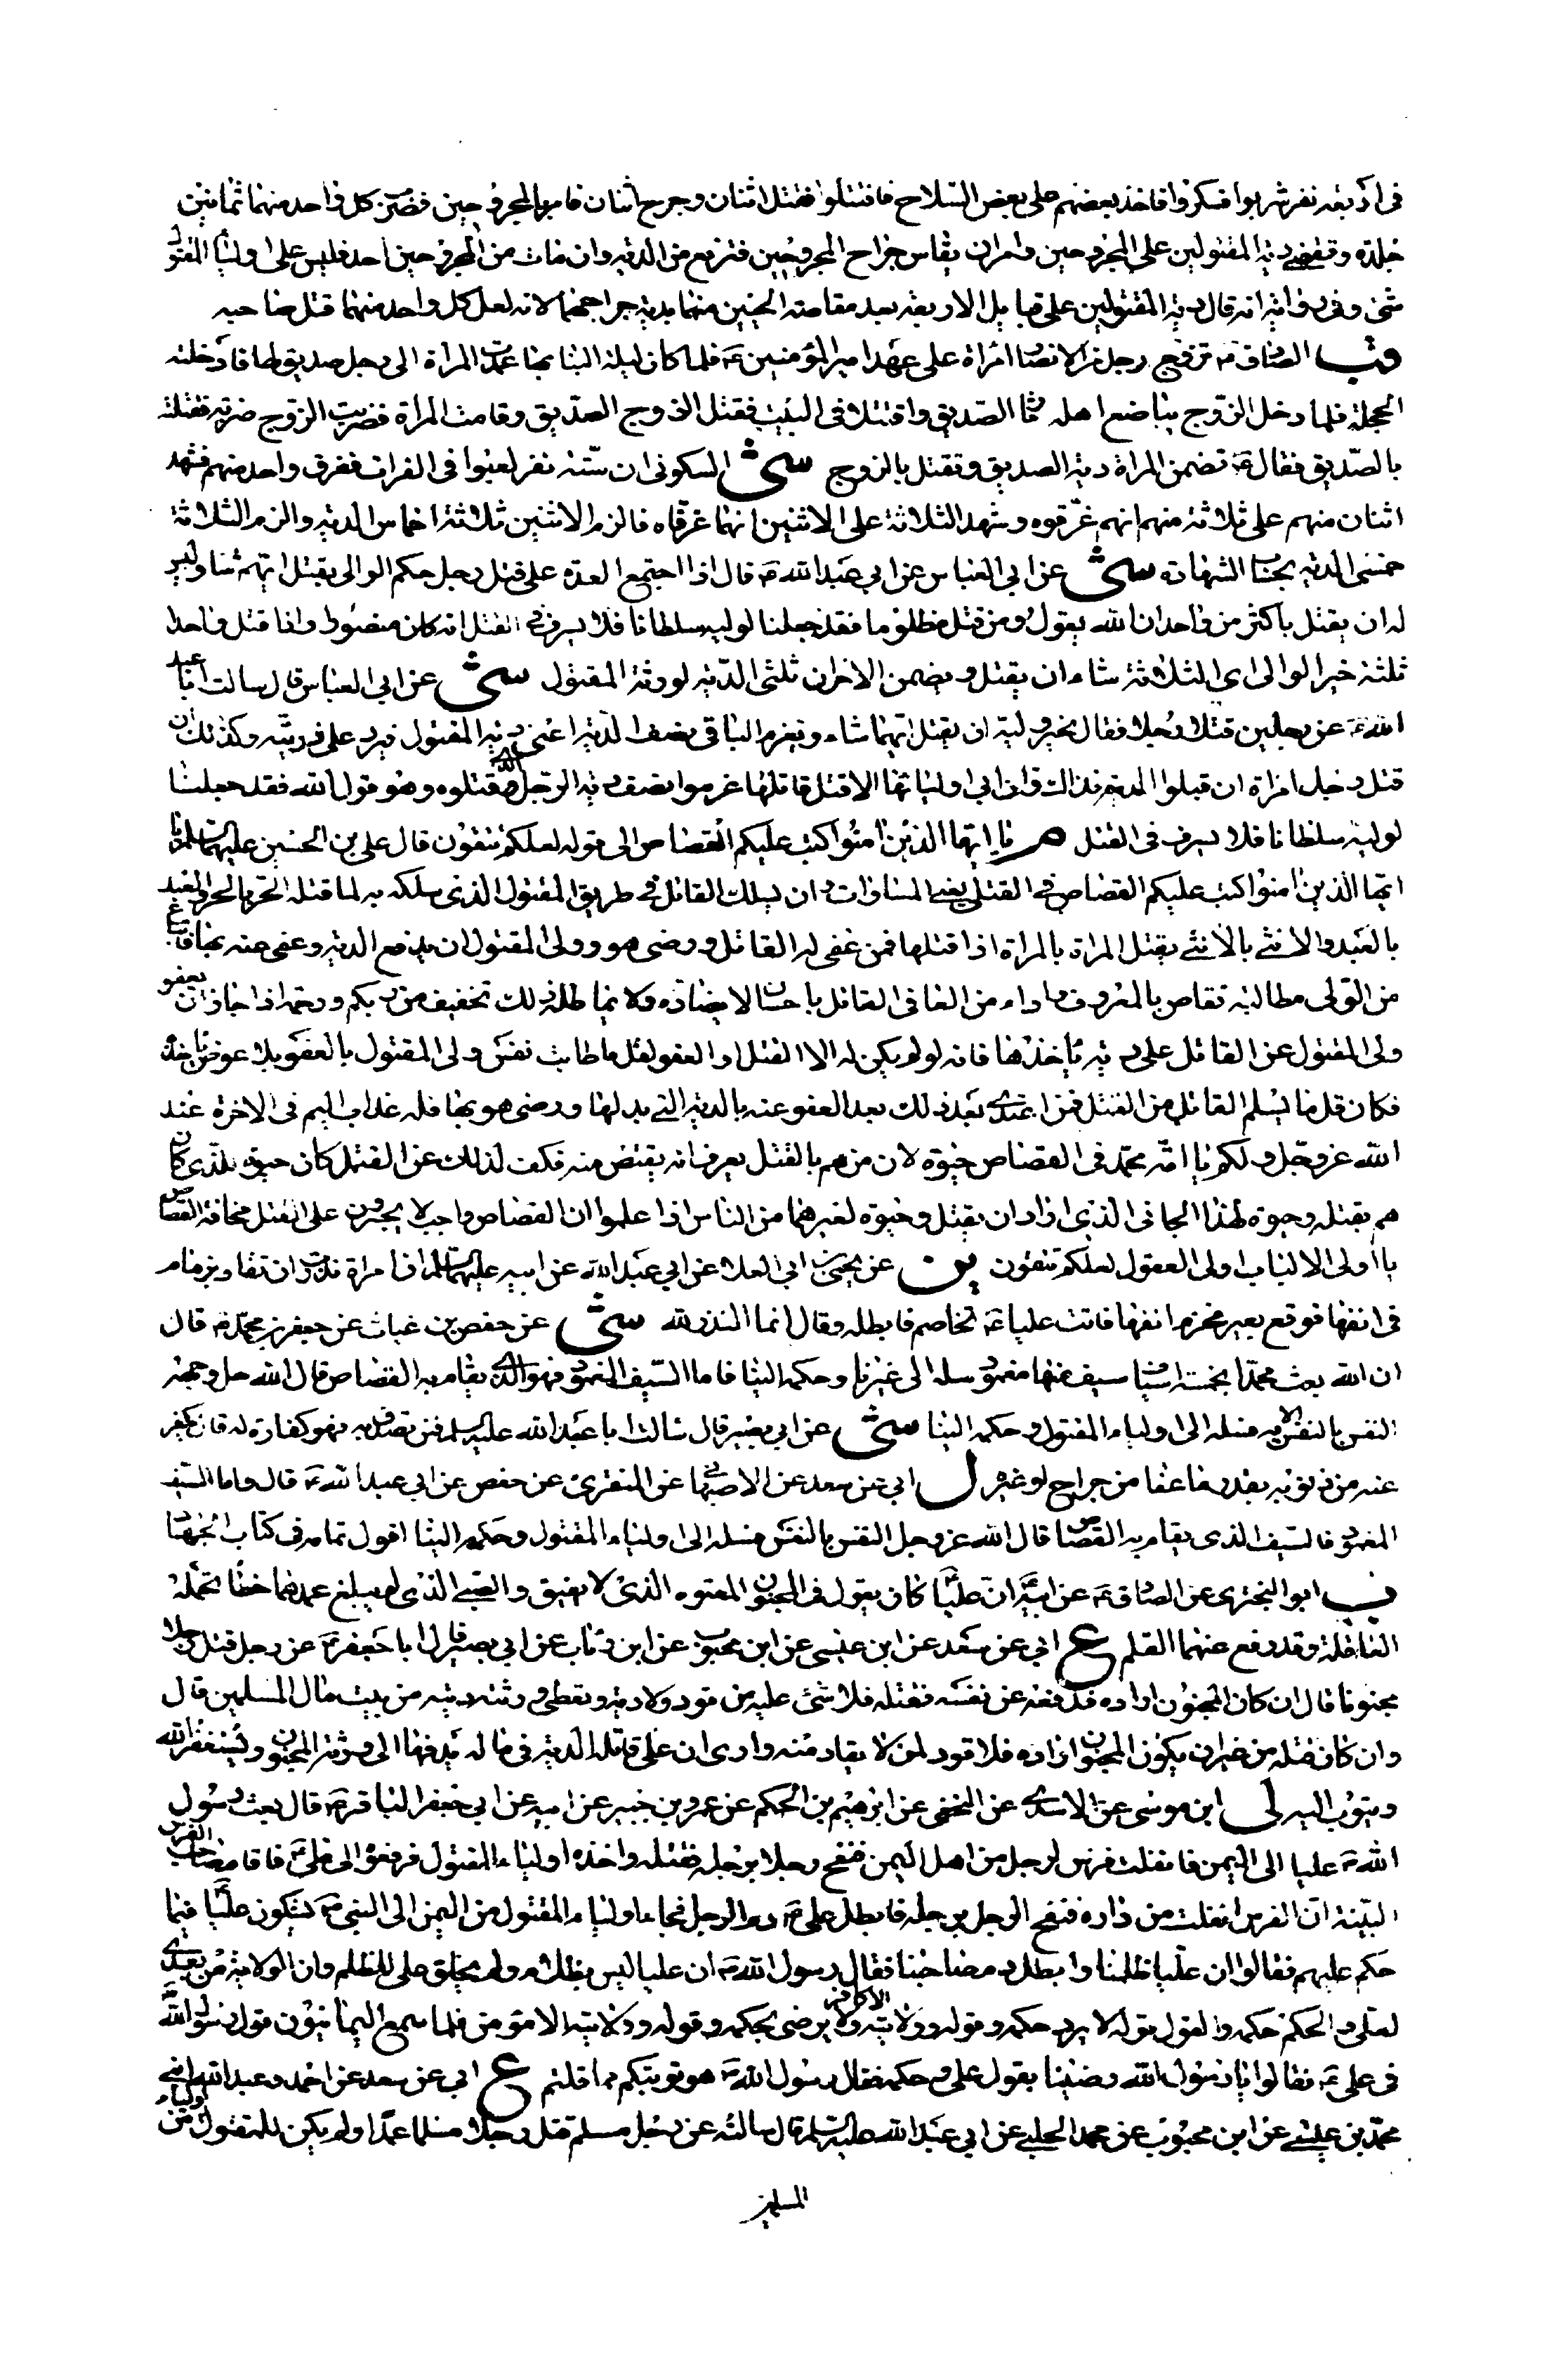 في اربعة نفر شربوا فسكروا فاخذ بعضهم على بعض السلاح فاقتتلوا فقتل اثنان وجرح اثنان فامر بالمجروحين فضرب كل واحد منهما ثمانين
جلدة وقضى دية المقتولين على المجروحين وامر ان يقاس جراح المجروحين فترفع من الدية وان مات من المجروحين احد فليس على اولياء المقتول
شئ وفي رواية انه قال دية المقتولين على قبايل الاربعة بعد مقاصة الحيين منهما بدية جراحهما لانه لعل كل واحد منهما قتل صاحبه
قب الصادق ع تزوج رجل من الانصار امراة على عهد امير المؤمنين ع فلما كان ليلة البناء بها عمدت المراة الى رجل صديق لها فادخلته
الحجلة فلما دخل الزوج يباضع اهله ثار الصديق واقتتلا في البيت فقتل الزوج الصديق وقامت المراة فضربت الزوج ضربة فقتلته
بالصديق فقال ع تضمن المراة دية الصديق وتقتل بالزوج شى السكوني ان ستة نفر لعبوا في الفرات فغرق واحد منهم فشهد
اثنان منهم على ثلاثة منهم انهم غرقوه وشهد الثلاثة على الاثنين انهما غرقاه فالزم الاثنين ثلاثة اخماس الدية والزم الثلاثة
خمسى الدية بحساب الشهادة شى عن ابي العباس عن ابي عبد الله ع قال اذا اجتمع العدة على قتل رجل حكم الوالي بقتل ايهم شاء وليس
له ان يقتل باكثر من واحد ان الله يقول ومن قتل مظلوما فقد جعلنا لوليه سلطانا فلا يسرف في القتل انه كان منصورا واذا قتل واحدا
ثلثة خير الوالي اي الثلاثة شاء ان يقتل ويضمن الاخران ثلثي الدية لورثة المقتول شى عن ابي العباس قال سالت ابا عبد
الله ع عن رجلين قتلا رجلا فقال يخير وليه ان يقتل ايهما شاء ويغرم الباقي نصف الدية اعني دية المقتول فيرد على ذريته وكذلك ان
قتل رجل امراة ان قبلوا الدية فذاك وان ابى اولياؤها الا قتل قاتلها غرموا نصف دية الرجل وقتلوه وهو قول الله فقد جعلنا
لوليه سلطانا فلا يسرف في القتل م يا ايها الذين امنوا كتب عليكم القصاص الى قوله لعلكم تتقون قال علي بن الحسين عليهما السلام يا
ايها الذين امنوا كتب عليكم القصاص في القتلى يعني المساوات وان يسلك القاتل في طريق المقتول الذي سلكه به لما قتله الحر بالحر والعبد
بالعبد والانثى بالانثى يقتل المراة بالمراة اذا قتلها فمن عفى له القاتل ورضى هو وولي المقتول ان يدفع الدية وعفى عنه بها فاتباع
من الولي مطالبة تقاص بالمعروف واداء من العافي القاتل باحسان لا يضاره ولا يماطله ذلك تخفيف من ربكم ورحمة اذا جاز ان يعفو
ولي المقتول عن القاتل على دية ياخذها فانه لو لم يكن له الا القتل او العفو لقل ما طابت نفس ولي المقتول بالعفو بلا عوض ياخذه
فكان قل ما يسلم القاتل من القتل فمن اعتدى بعد ذلك بعد العفو عنه بالدية التي بذلها ورضى هو بها فله عذاب اليم في الاخرة عند
الله عز وجل ولكم يا امة محمد في القصاص حيوة لان من هم بالقتل يعرف انه يقتص منه فكف لذلك عن القتل كان حيوة للذي كان
هم بقتله وحيوة لهذا الجاني الذي اراد ان يقتل وحيوة لغيرهما من الناس اذا علموا ان القصاص واجب لا يجترون على القتل مخافة القصاص
يا اولى الالباب اولى العقول لعلكم تتقون ين عن يحيى بن ابي العلاء عن ابي عبد الله عن ابيه عليهما السلام ان امراة نذرت ان تقاد بزمام
في انفها فوقع بعير فخرم انفها فاتت عليا ع تخاصم فابطله وقال انما النذر لله شى عن حفص بن غياث عن جعفر بن محمد ع قال
ان الله بعث محمدا بخمسة اسياف سيف منها مغمود سله الى غيرنا وحكمه الينا فاما السيف المغمود فهو الذي يقام به القصاص قال الله جل وجهه
النفس بالنفس الاية فسله الى اولياء المقتول وحكمه الينا شى عن ابي بصير قال سالت ابا عبد الله عليه السلم فمن تصدق به فهو كفارة له قال يكفر
عنه من ذنوبه بقدر ما عفا من جراح او غيره ل ابي عن سعد عن الاصبهاني عن المنقري عن حفص عن ابي عبد الله ع قال واما السيف
المغمود فالسيف الذي يقام به القصاص قال الله عز وجل النفس بالنفس فسله الى اولياء المقتول وحكمه الينا اقول تمامه في كتاب الجهاد
ب ابو البختري عن الصادق ع عن ابيه ان عليا كان يقول في المجنون المعتوه الذي لا يفيق والصبي الذي لم يبلغ عمدهما خطا تحمله
العاقلة وقد رفع عنهما القلم ع ابي عن سعد عن ابن عيسى عن ابن محبوب عن ابن رئاب عن ابي بصير قال سالت ابا جعفر ع عن رجل قتل رجلا
مجنونا قال ان كان المجنون اراده فدفعه عن نفسه فقتله فلا شئ عليه من قود ولا دية ويعطى ورثته دية من بيت مال المسلمين قال
وان كان قتله من غير ان يكون المجنون اراده فلا قود لمن لا يقاد منه وارى ان على قاتله الدية في ماله يدفعها الى ورثة المجنون ويستغفر الله
ويتوب اليه لى ابن موسى عن الاسدي عن النخعي عن ابرهيم بن الحكم عن عمرو بن جبير عن ابيه عن ابي جعفر الباقر ع قال بعث رسول
الله ص عليا الى اليمن فانفلت فرس لرجل من اهل اليمن فنفح رجلا برجله فقتله واخذه اولياء المقتول فرفعوه الى علي ع فاقام صاحب الفرس
البينة ان الفرس انفلت من داره فنفح الرجل برجله فابطل علي ع دم الرجل فجاء اولياء المقتول من اليمن الى النبي ص يشكون عليا فيما
حكم عليهم فقالوا ان عليا ظلمنا وابطل دم صاحبنا فقال رسول الله ص ان عليا ليس بظلام ولم يخلق علي للظلم وان الولاية من بعدي
لعلي والحكم حكمه والقول قوله لا يرد حكمه وقوله وولايته الا كافر ولا يرضى بحكمه وقوله وولايته الا مؤمن فلما سمع اليمانيون قول رسول الله
في علي ع فقالوا يا رسول الله رضينا بقول علي وحكمه فقال رسول الله ص هو توبتكم مما قلتم ع ابي عن سعد عن احمد وعبد الله ابني
محمد بن عيسى عن ابن محبوب عن محمد الحلبي عن ابي عبد الله عليه السلم قال سالته عن رجل مسلم قتل رجلا مسلما عمدا ولم يكن للمقتول اولياء من
المسلمين